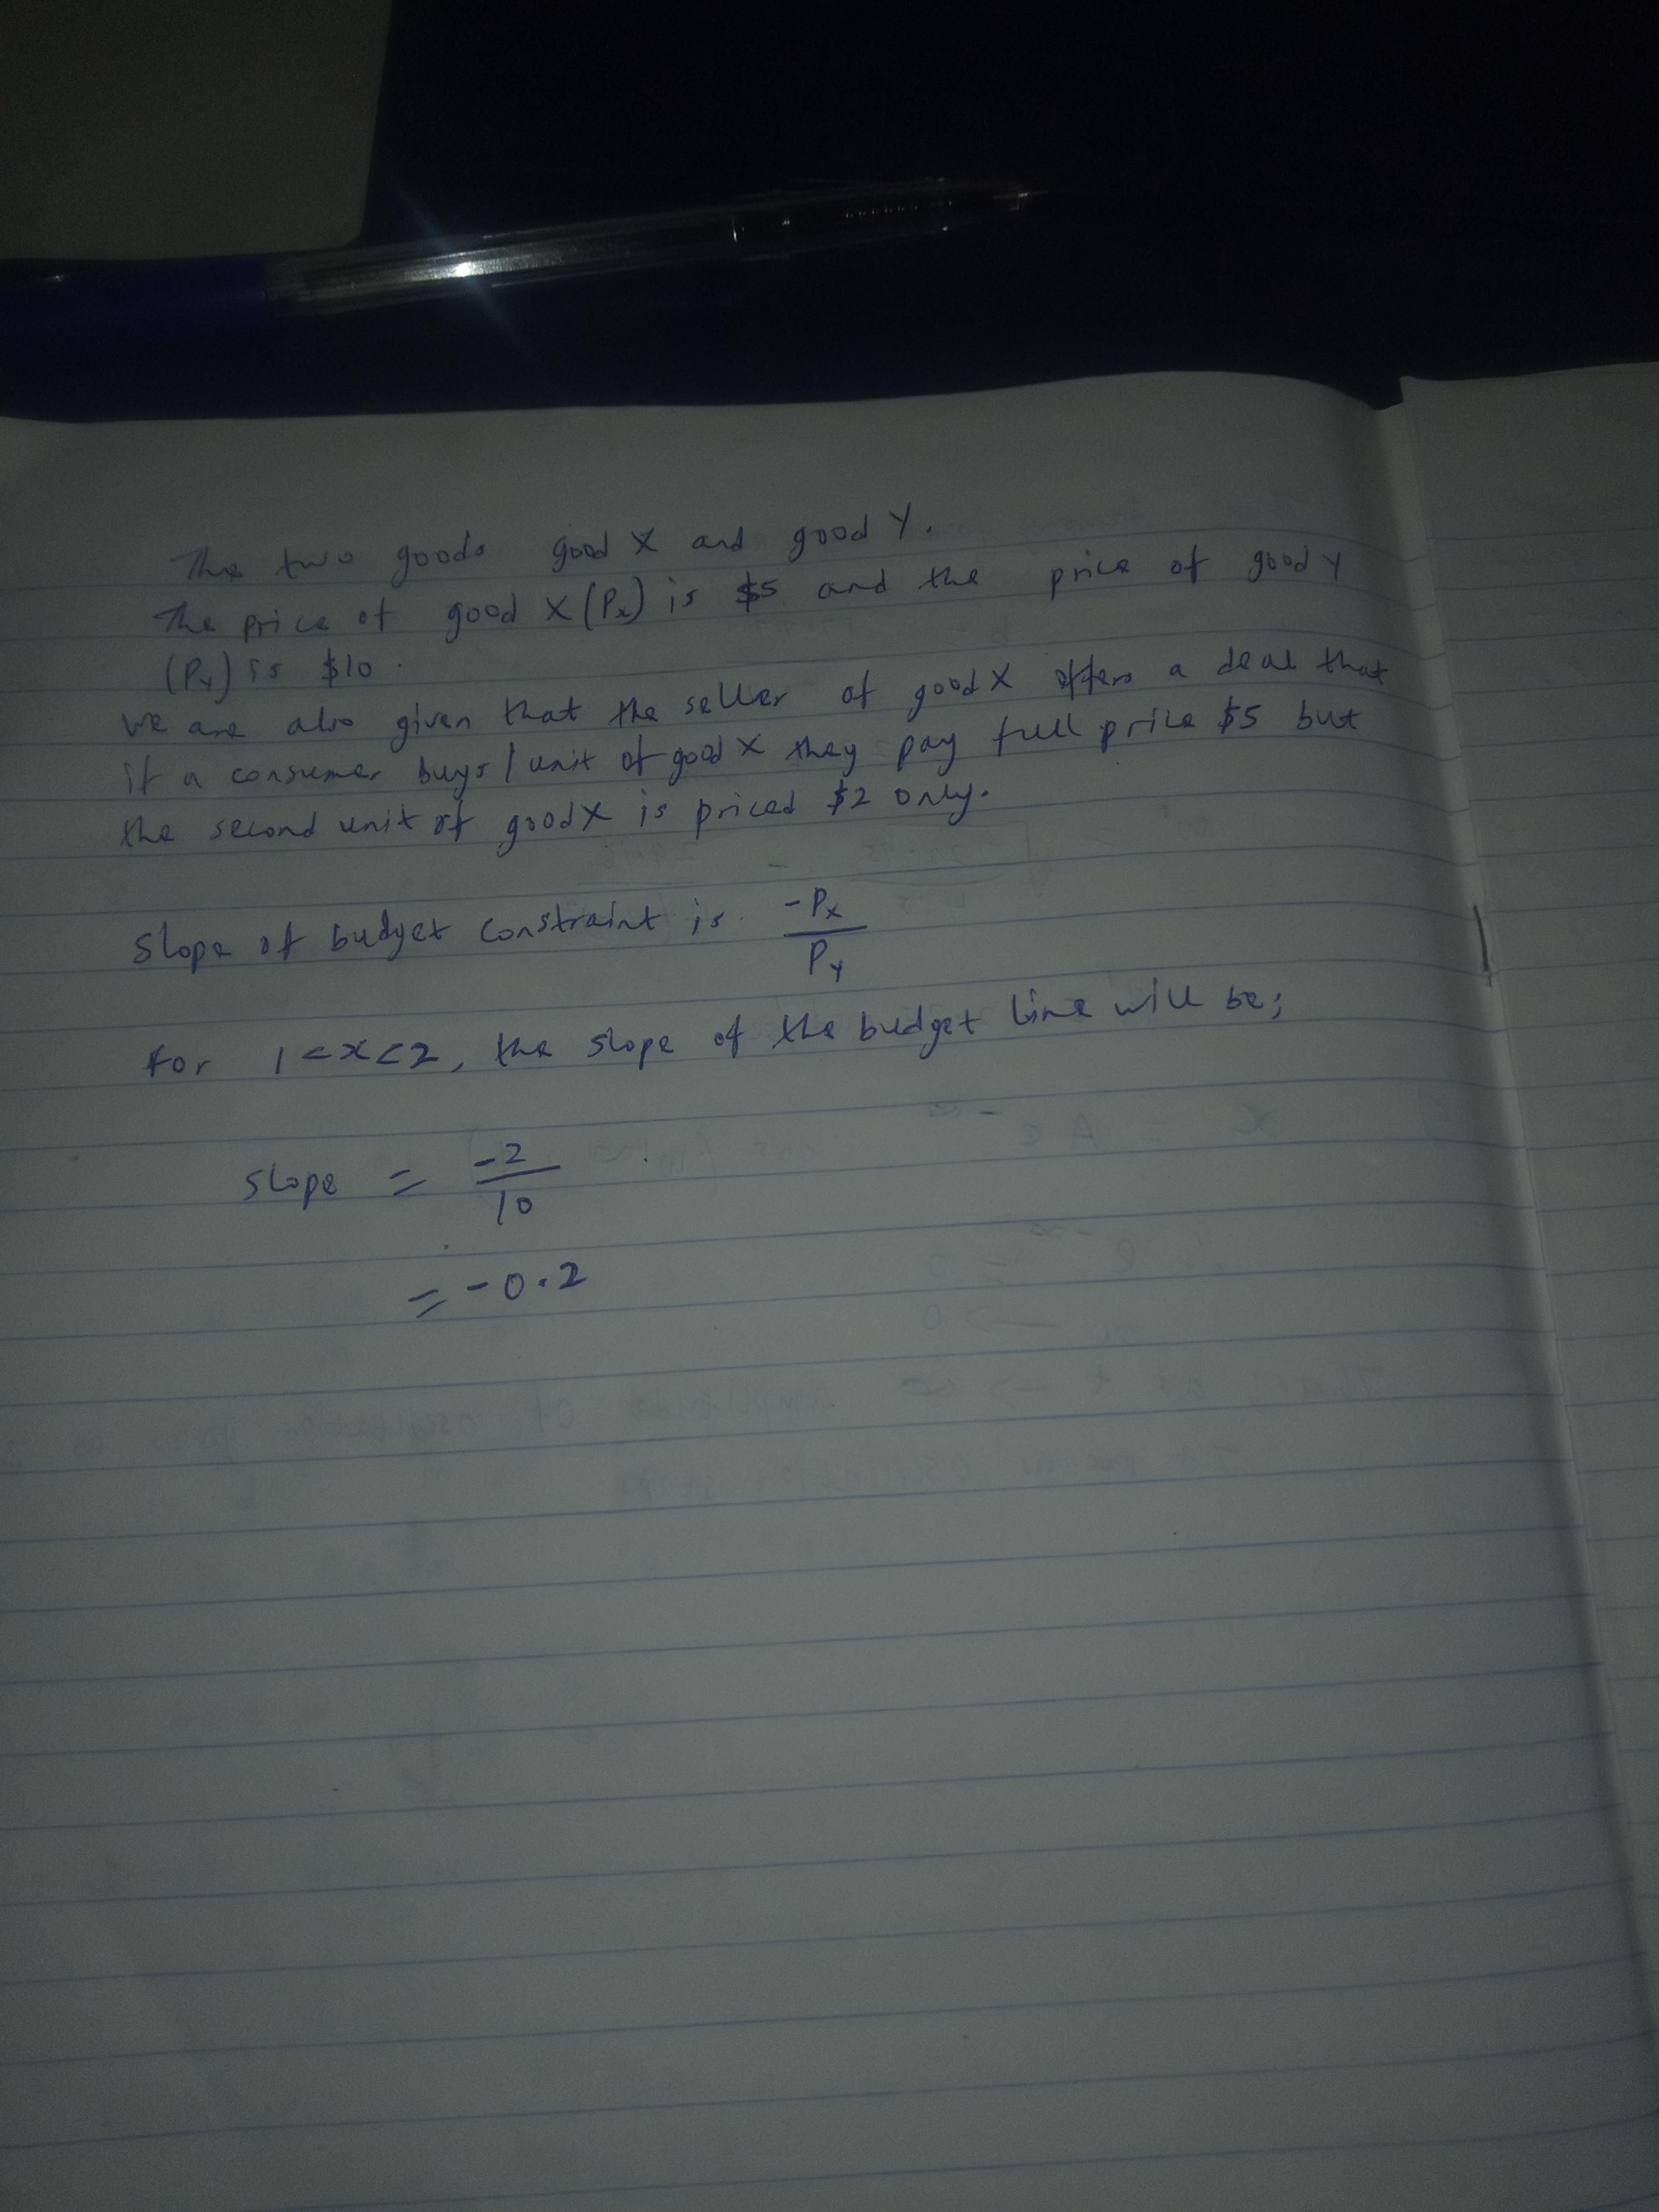 The two goods good X and good Y.
The price of good X (Px) is $5 and the price of good Y
(Py) is $10.
we are also given that the seller of good X offers a deal that
if a consumer buys 1 unit of good X they pay full price $5 but
the second unit of good X is priced $2 only.
Slope of budget constraint is -Px
Py
For 1<x<2, the slope of the budget line will be;
slope = -2
10
= -0.2